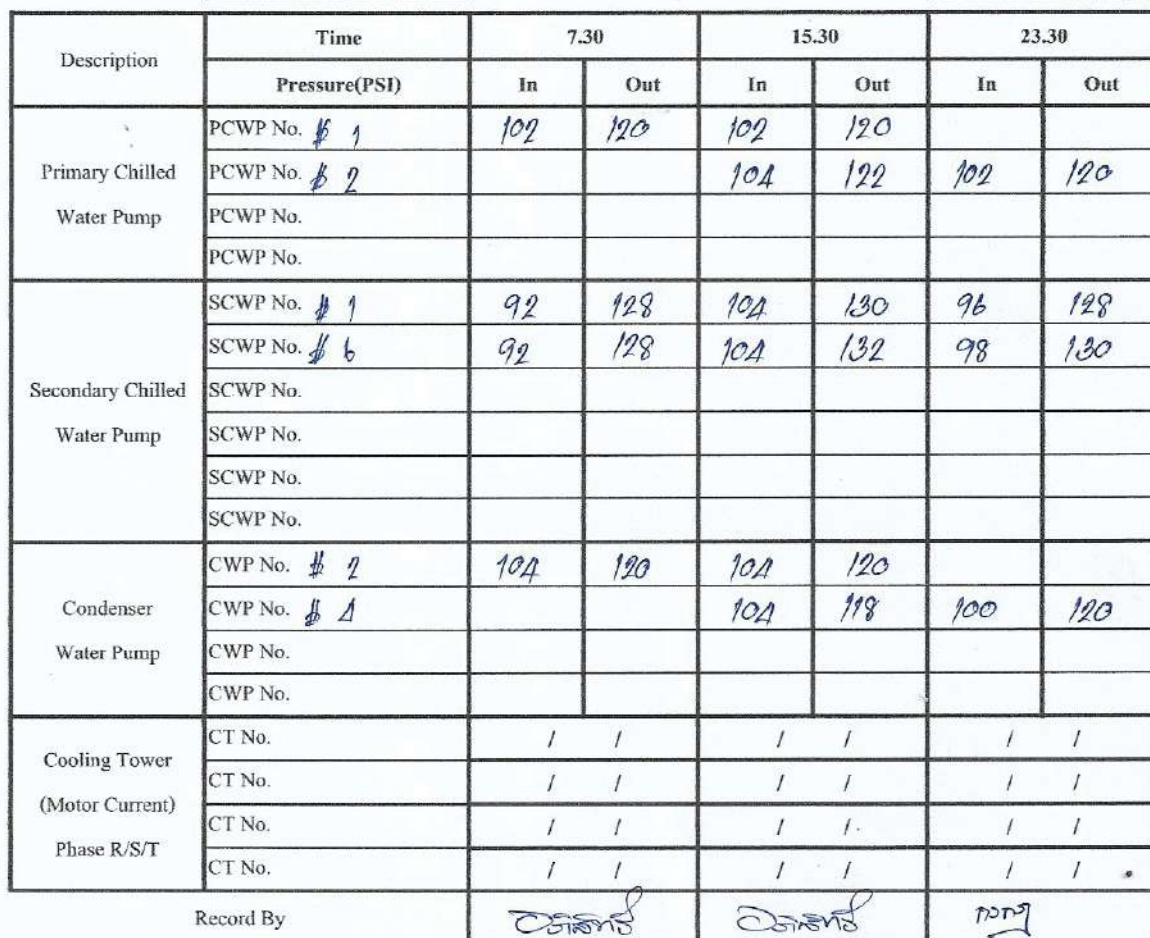 Description Time 7.30 15.30 23.30
Pressure(PSI) In Out In Out In Out
Primary Chilled Water Pump
PCWP No. # 1 102 120 102 120
PCWP No. # 2 104 122 102 120
PCWP No.
PCWP No.
Secondary Chilled Water Pump
SCWP No. # 1 92 128 104 130 96 128
SCWP No. # 6 92 128 104 132 98 130
SCWP No.
SCWP No.
SCWP No.
SCWP No.
Condenser Water Pump
CWP No. # 2 104 120 104 120
CWP No. # 4 104 118 100 120
CWP No.
CWP No.
Cooling Tower (Motor Current) Phase R/S/T
CT No. / / / / / /
CT No. / / / / / /
CT No. / / / / / /
CT No. / / / / / /
Record By